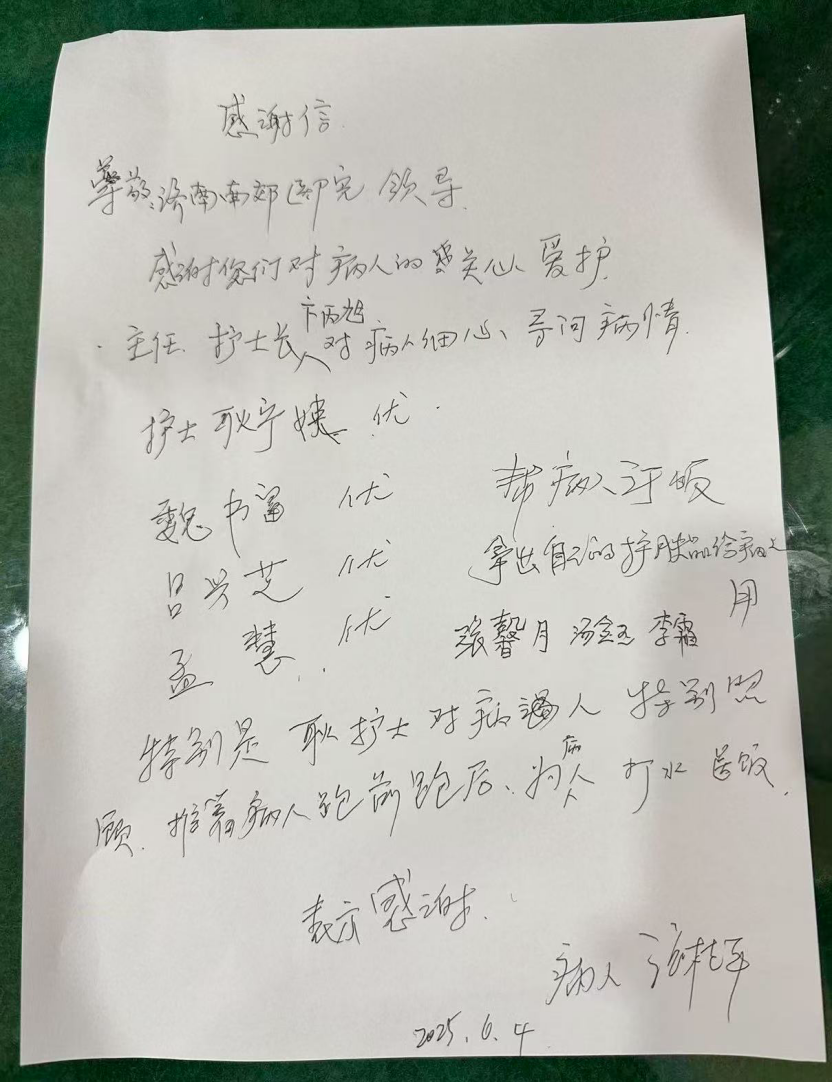 感谢信
尊敬济南南郊医院 领导
感谢您们对病人的关心、爱护
卞丙旭
主任 护士长 对病人细心、寻问病情
护士 耿宁 优
魏书 优 帮病人订饭
吕兴芝 优 拿出自己的护肤品给病人
孟慧 优 用
张馨月 汤鑫玉 李霜
特别是 耿护士 对病人 特别照
顾、推着病人跑前跑后、为病人 打水 送饭、
表示感谢、
病人
2025.6.4